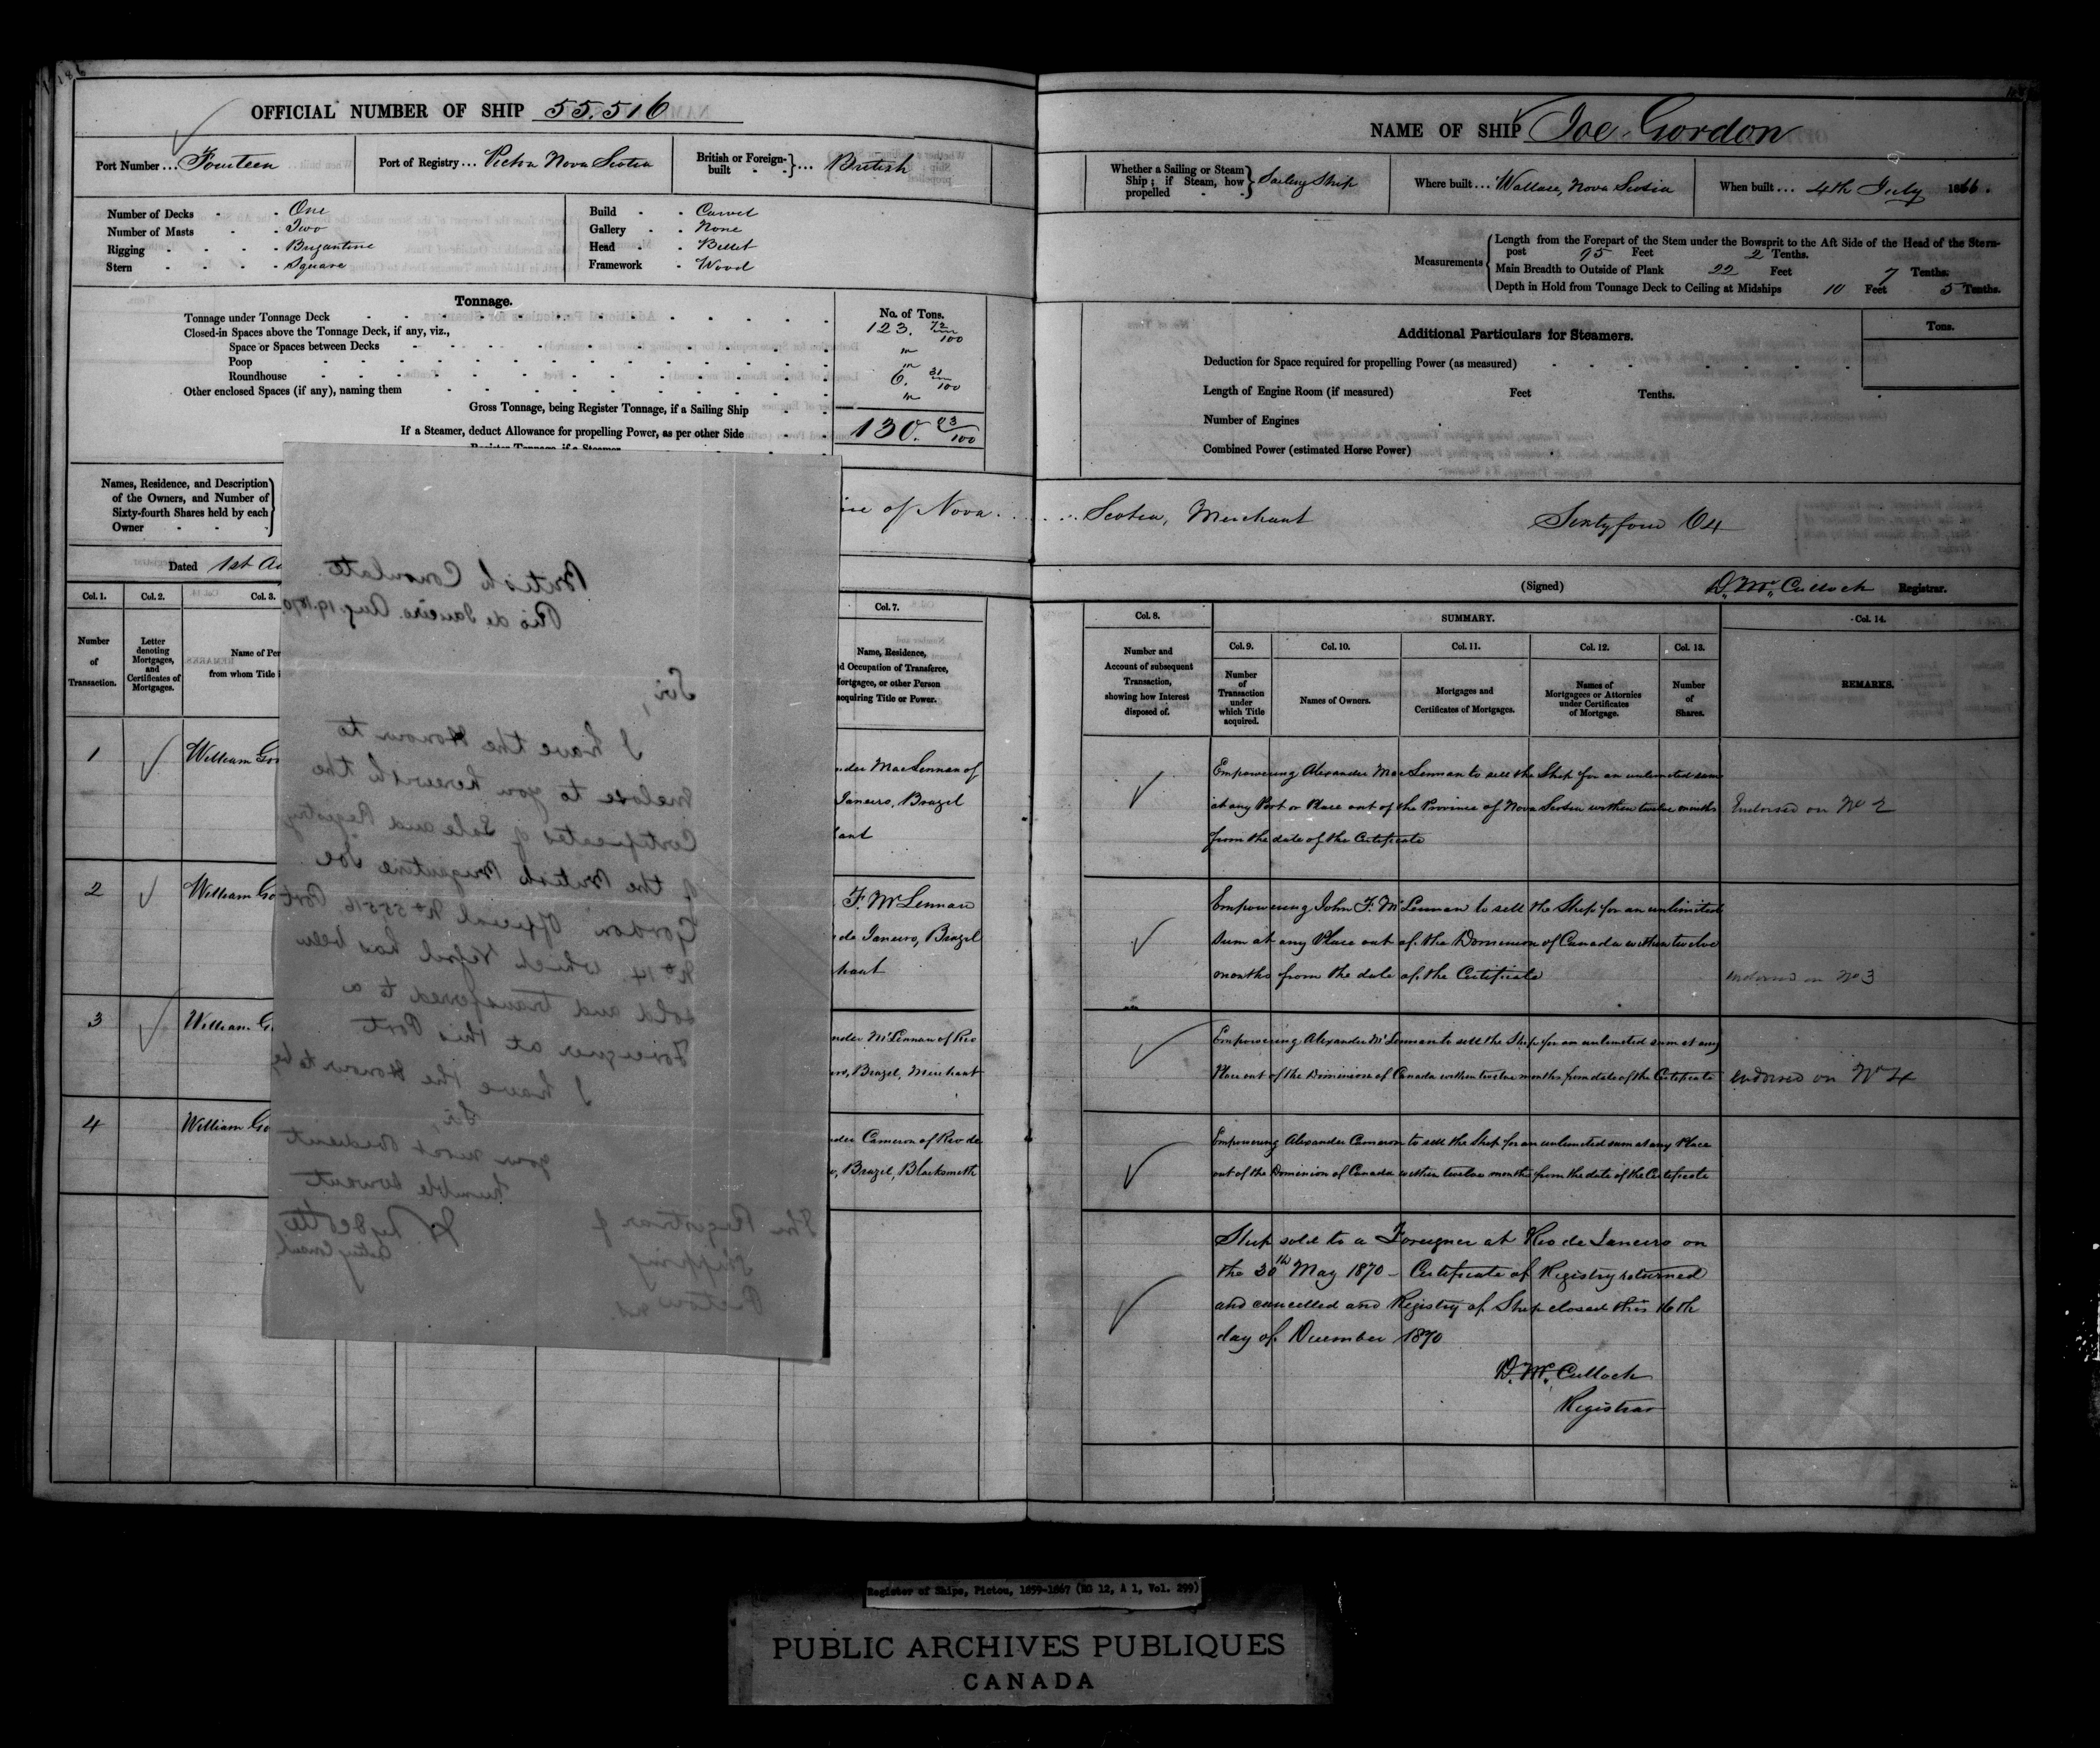 186
OFFICIAL NUMBER OF SHIP 55.516
Port Number ... Fourteen
Port of Registry ... Pictou Nova Scotia
British or Foreign-built - - } ... British
Number of Decks - - One
Number of Masts - - Two
Rigging - - - - Brigantine
Stern - - - - Square
Build - - Carvel
Gallery - - None
Head - - Billet
Framework - Wood
Tonnage.
No. of Tons.
Tonnage under Tonnage Deck 123. 72/100
Closed-in Spaces above the Tonnage Deck, if any, viz.,
Space or Spaces between Decks "
Poop "
Roundhouse 6. 31/100
Other enclosed Spaces (if any), naming them "
Gross Tonnage, being Register Tonnage, if a Sailing Ship
130. 03/100
If a Steamer, deduct Allowance for propelling Power, as per other Side
Register Tonnage, if a Steamer
Names, Residence, and Description
of the Owners, and Number of
Sixty-fourth Shares held by each
Owner
of Nova
Dated 1st
Col. 1.
Col. 2.
Col. 3.
Col. 7.
Number
of
Transaction.
Letter
denoting
Mortgages,
and
Certificates of
Mortgages.
Name of Per
from whom Title i
Name, Residence,
d Occupation of Transferee,
ortgagee, or other Person
acquiring Title or Power.
1 William Gor
nder MacLennan of
Janeiro, Brazil
hant
2 William Go
F. McLennan
de Janeiro, Brazil
hant
3 William G
nder McLennan of Rio
ro, Brazil, Merchant
4 William Go
nder Cameron of Rio de
o, Brazil, Blacksmith
British Consulate
Rio de Janeiro Aug. 19. 1870.
Sir,
I have the Honour to
inclose to you herewith the
Certificates of Sale and Registry
of the British Brigantine Joe
Gordon Official No 55516. Port
No 14, which Vessel has been
sold and transferred to a
Foreigner at this Port
I have the Honour to be
Sir,
your most obedient
humble servant
Acting Consul
The Registrar of
Shipping
Pictou NS.
NAME OF SHIP Joe Gordon
Whether a Sailing or Steam
Ship; if Steam, how
propelled - - } Sailing Ship
Where built ... Wallace, Nova Scotia
When built ... 4th July 1866.
Measurements
Length from the Forepart of the Stem under the Bowsprit to the Aft Side of the Head of the Stern-
post 95 Feet 2 Tenths.
Main Breadth to Outside of Plank 22 Feet 7 Tenths.
Depth in Hold from Tonnage Deck to Ceiling at Midships 10 Feet 5 Tenths.
Additional Particulars for Steamers.
Tons.
Deduction for Space required for propelling Power (as measured)
Length of Engine Room (if measured) Feet Tenths.
Number of Engines
Combined Power (estimated Horse Power)
Scotia, Merchant Sixtyfour 64
(Signed) D. McCulloch Registrar.
Col. 8.
SUMMARY.
Col. 14.
Number and
Account of subsequent
Transaction,
showing how Interest
disposed of.
Col. 9.
Number
of
Transaction
under
which Title
acquired.
Col. 10.
Names of Owners.
Col. 11.
Mortgages and
Certificates of Mortgages.
Col. 12.
Names of
Mortgagees or Attornies
under Certificates
of Mortgage.
Col. 13.
Number
of
Shares.
REMARKS.
Empowering Alexander MacLennan to sell the Ship for an unlimited sum
at any Port or Place out of the Province of Nova Scotia within twelve months
from the date of the Certificate
Endorsed on No 2
Empowering John F. McLennan to sell the Ship for an unlimited
sum at any Place out of the Dominion of Canada within twelve
months from the date of the Certificate
endorsed on No 3
Empowering Alexander McLennan to sell the Ship for an unlimited sum at any
Place out of the Dominion of Canada within twelve months from date of the Certificate
endorsed on No 4
Empowering Alexander Cameron to sell the Ship for an unlimited sum at any Place
out of the Dominion of Canada within twelve months from the date of the Certificate
Ship sold to a Foreigner at Rio de Janeiro on
the 30th May 1870 - Certificate of Registry returned
and cancelled and Registry of Ship closed this 16th
day of December 1870
D. McCulloch
Registrar
Register of Ships, Pictou, 1859-1867 (RG 12, A 1, Vol. 299)
PUBLIC ARCHIVES PUBLIQUES
CANADA